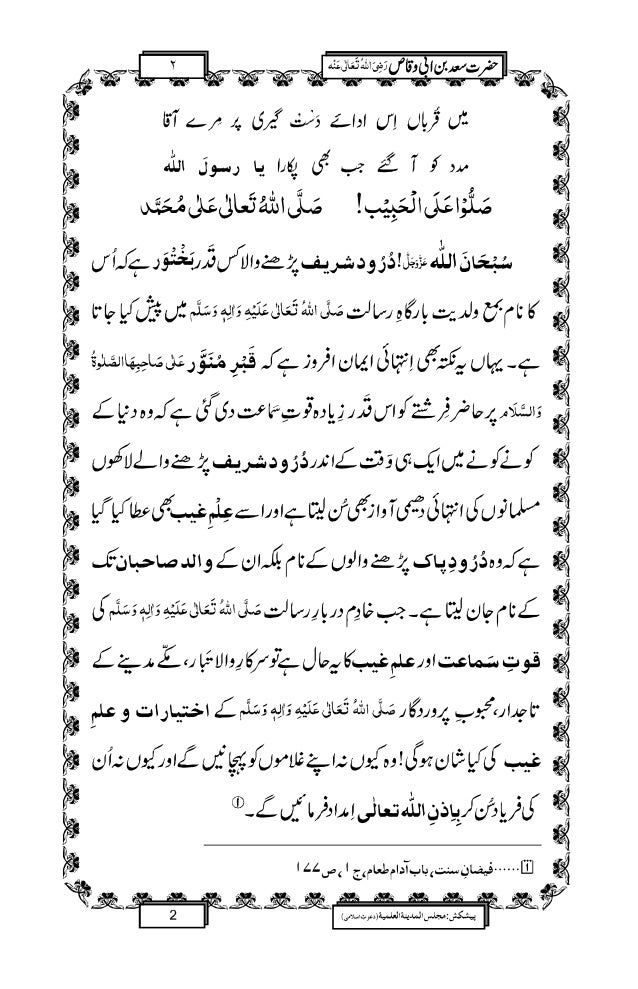 حضرت سعد بن ابی وقاص رَضِیَ اللہُ تَعَالٰی عَنْہ
۲
میں قُرباں اِس ادائے دَسْت گیری پر مِرے آقا
مدد کو آ گئے جب بھی پکارا یا رسولَ اللہ
صَلُّوْا عَلَی الْحَبِیْب! صَلَّی اللہُ تَعَالٰی عَلٰی مُحَمَّد
سُبْحَانَ اللہ عَزَّوَجَلَّ! دُرُود شریف پڑھنے والا کس قدر بَخْتْوَر ہے کہ اُس
کا نام بمع ولدیت بارگاہِ رسالت صَلَّی اللہُ تَعَالٰی عَلَیْہِ وَاٰلِہٖ وَسَلَّم میں پیش کیا جاتا
ہے۔ یہاں یہ نکتہ بھی اِنتہائی ایمان افروز ہے کہ قَبْرِ مُنَوَّر عَلٰی صَاحِبِہَا الصَّلٰوۃُ
وَالسَّلَام پر حاضر فِرِشتے کو اس قَدَر زِیادہ قوتِ سَماعت دی گئی ہے کہ وہ دنیا کے
کونے کونے میں ایک ہی وَقت کے اندر دُرُود شریف پڑھنے والے لاکھوں
مسلمانوں کی انتہائی دھیمی آواز بھی سُن لیتا ہے اور اسے عِلْمِ غیب بھی عطا کیا گیا
ہے کہ وہ دُرُودِ پاک پڑھنے والوں کے نام بلکہ ان کے والد صاحبان تک
کے نام جان لیتا ہے۔ جب خادِمِ دربارِ رسالت صَلَّی اللہُ تَعَالٰی عَلَیْہِ وَاٰلِہٖ وَسَلَّم کی
قوتِ سَماعت اور علمِ غیب کا یہ حال ہے تو سرکارِ والا تبار، مکّے مدینے کے
تاجدار، محبوبِ پروردگار صَلَّی اللہُ تَعَالٰی عَلَیْہِ وَاٰلِہٖ وَسَلَّم کے اختیارات و علمِ
غیب کی کیا شان ہوگی! وہ کیوں نہ اپنے غلاموں کو پہچانیں گے اور کیوں نہ اُن
کی فریاد سُن کر بِاِذنِ اللہ تعالٰی اِمداد فرمائیں گے۔ ①
①……فیضانِ سنت، باب آدام طعام، ج ۱، ص ۱۷۷
پیشکش: مجلس المدینۃ العلمیۃ (دعوت اسلامی)
2